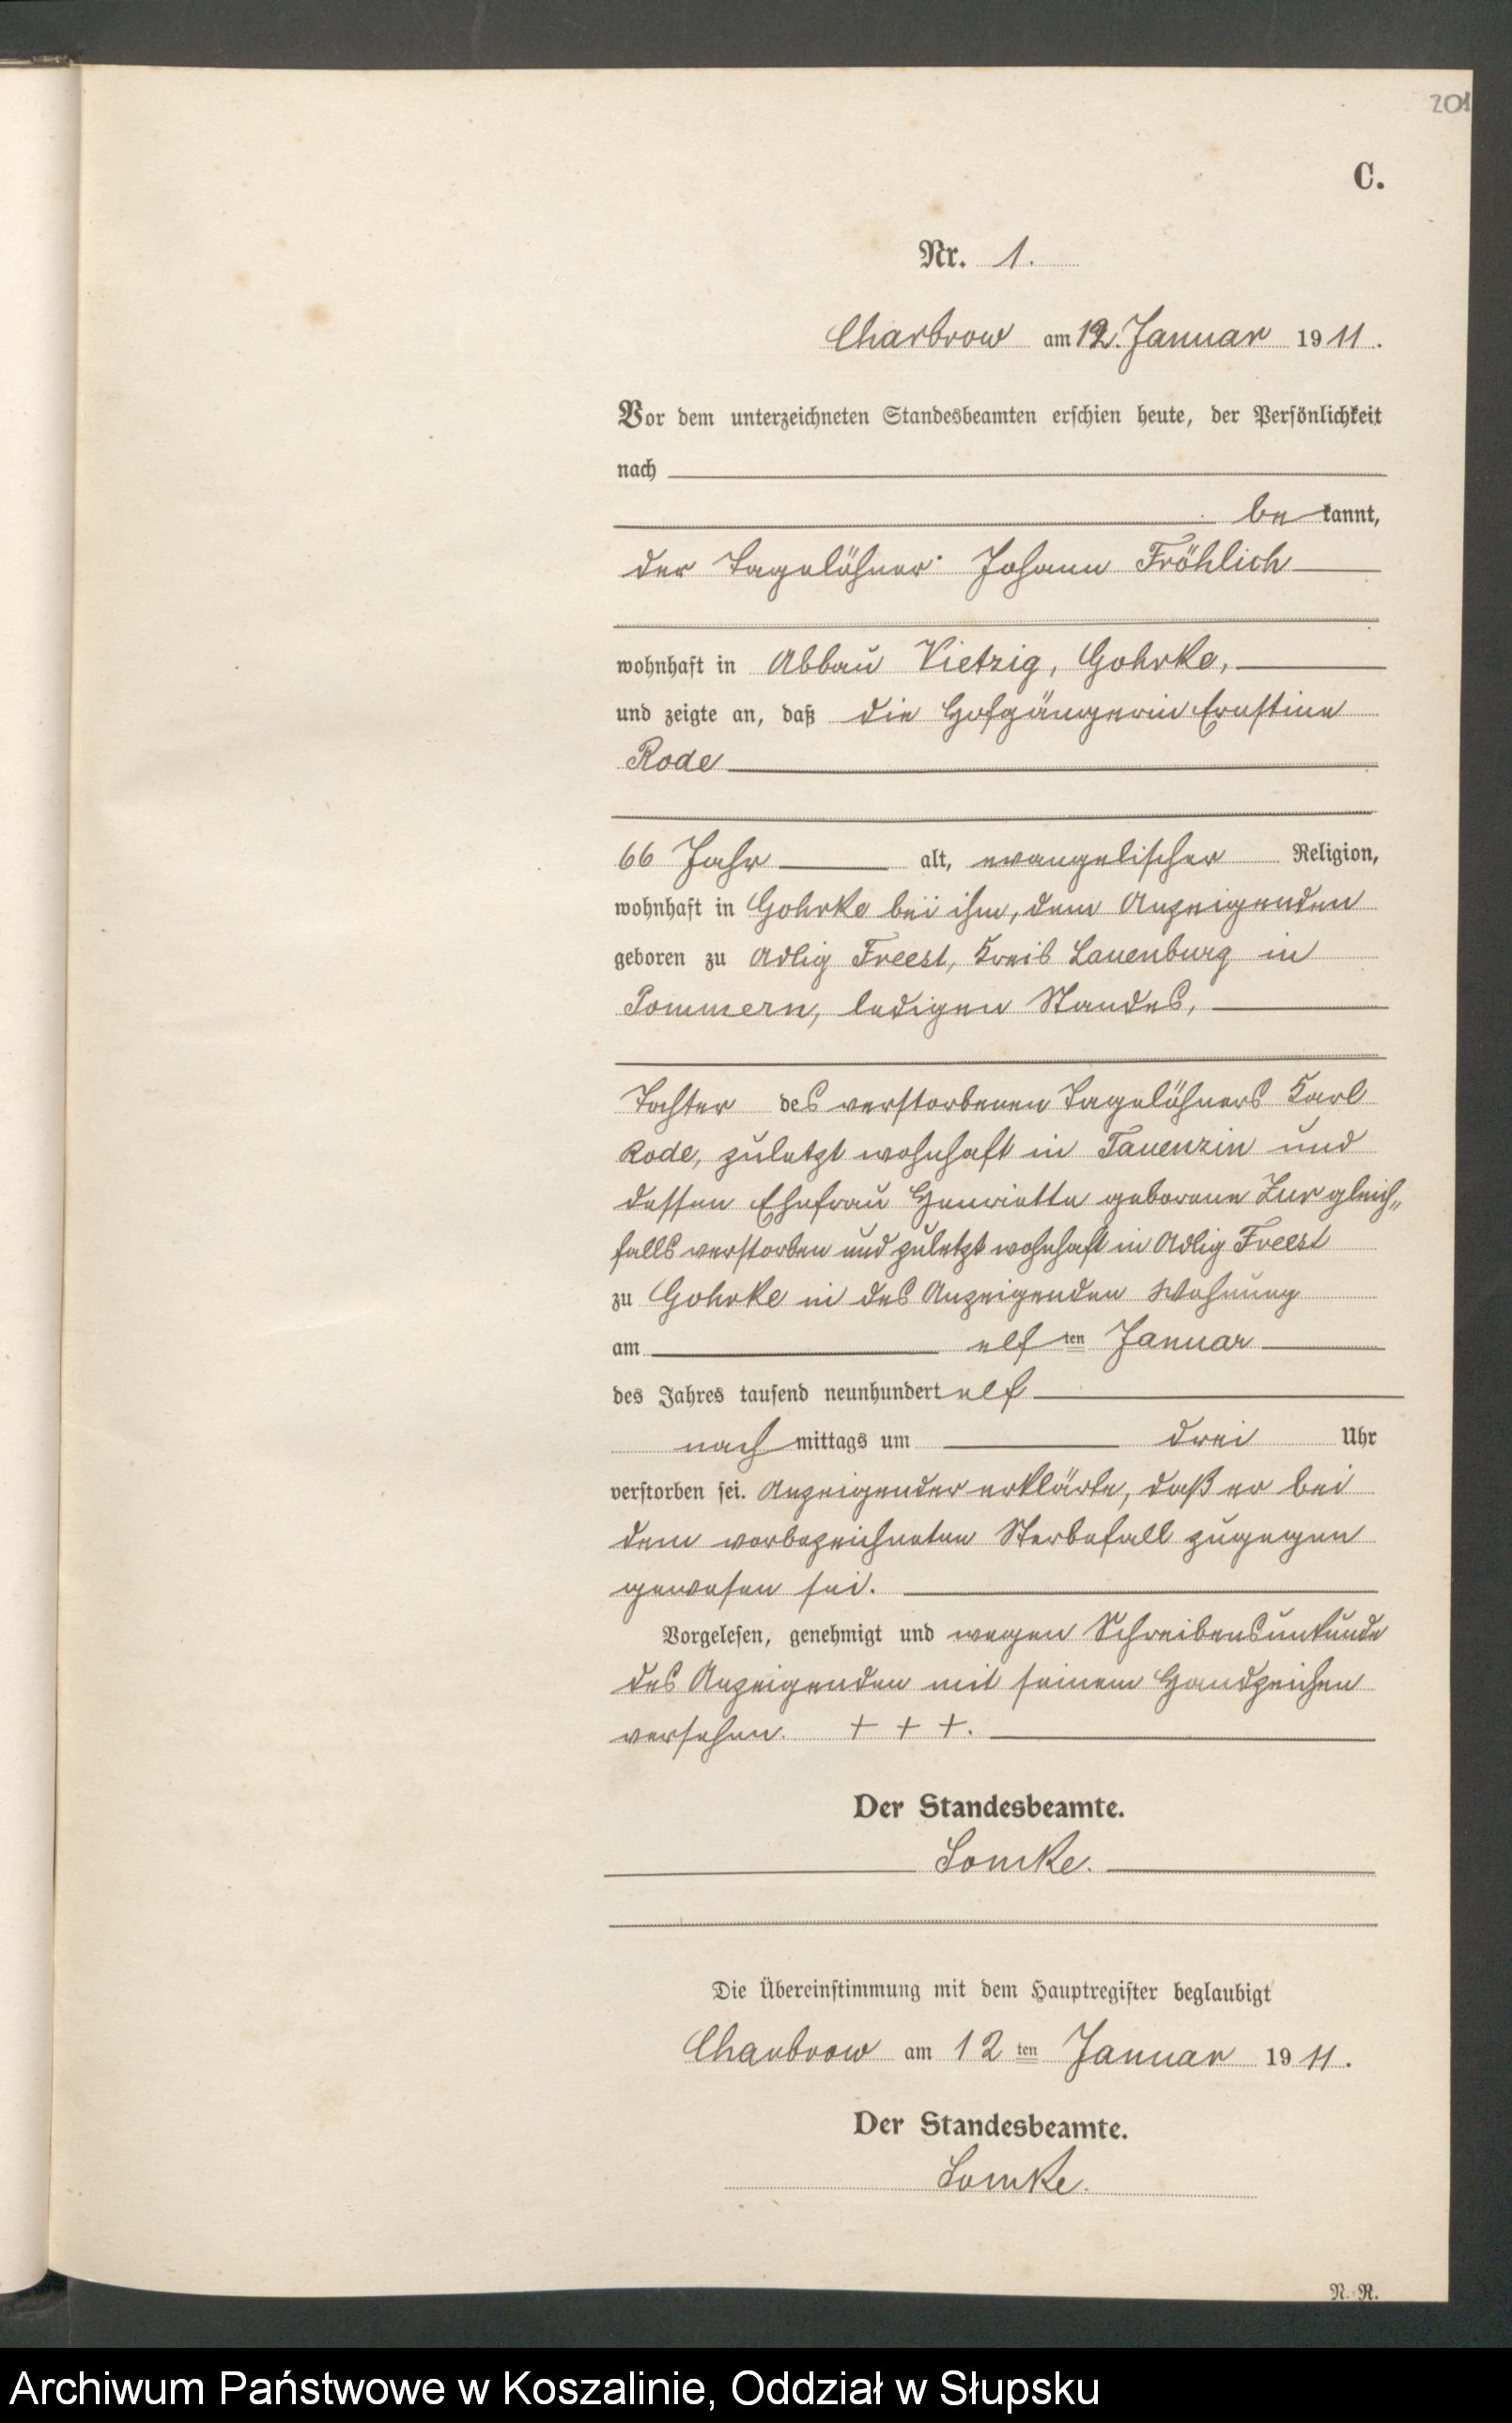 201
C.
Nr. 1.
Charbrow am 12. Januar 1911.
Vor dem unterzeichneten Standesbeamten erschien heute, der Persönlichkeit
nach
be kannt,
der Tagelöhner Johann Fröhlich
wohnhaft in Abbau Vietzig, Gohrke,
und zeigte an, daß die Hofgängerin Ernstine
Rode
66 Jahr alt, evangelischer Religion,
wohnhaft in Gohrke bei ihm, dem Anzeigenden
geboren zu Adlig Freest, Kreis Lauenburg in
Pommern, ledigen Standes,
Tochter des verstorbenen Tagelöhners Karl
Rode, zuletzt wohnhaft in Tauenzin und
dessen Ehefrau Henriette geborene Zur gleich„
falls verstorben und zuletzt wohnhaft in Adlig Freest
zu Gohrke in des Anzeigenden Wohnung
am elf ten Januar
des Jahres tausend neunhundert elf
nach mittags um drei Uhr
verstorben sei. Anzeigender erklärte, daß er bei
dem vorbezeichneten Sterbefall zugegen
gewesen sei.
Vorgelesen, genehmigt und wegen Schreibensunkunde
des Anzeigenden mit seinem Handzeichen
versehen. + + +.
Der Standesbeamte.
Lomke.
Die Übereinstimmung mit dem Hauptregister beglaubigt
Charbrow am 12 ten Januar 1911.
Der Standesbeamte.
Lomke.
N.-R.
Archiwum Państwowe w Koszalinie, Oddział w Słupsku